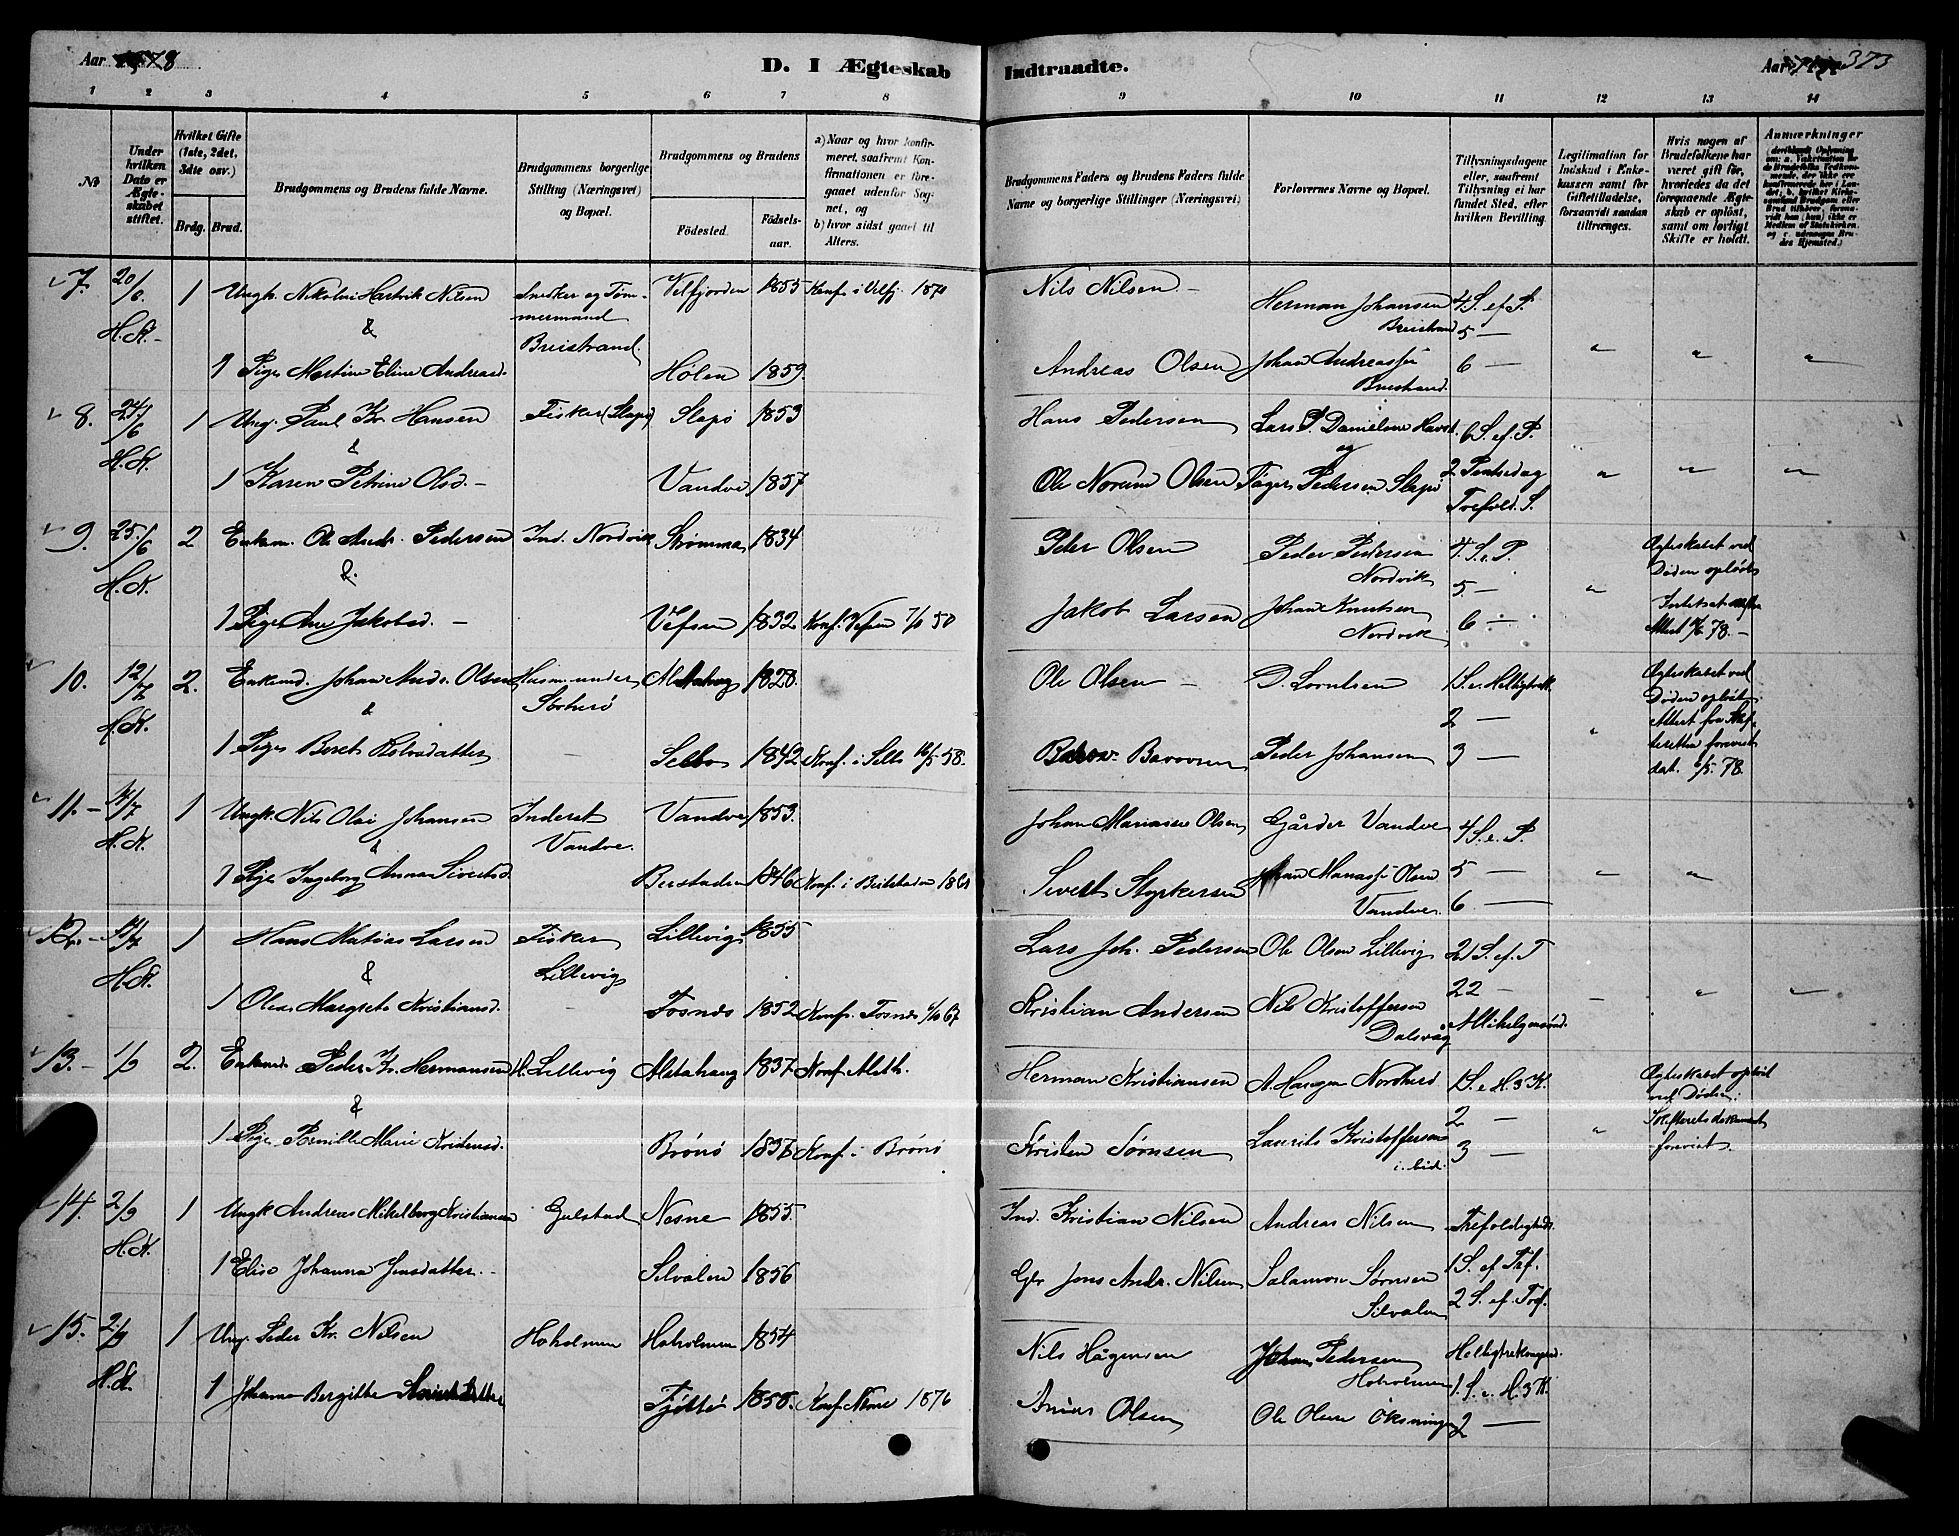 Aar 1878
D. I Ægteskab
Indtraadte.
Aar 373
1 2 3 4 5 6 7 8 9 10 11 12 13 14
№
Under hvilken Dato er Ægteskabet stiftet.
Hvilket Gifte (1ste, 2det, 3die osv.)
Brdg. Brud.
Brudgommens og Brudens fulde Navne.
Brudgommens borgerlige Stilling (Næringsvei) og Bopæl.
Brudgommens og Brudens
Fødested.
Fødselsaar.
a) Naar og hvor konfirmeret, saafremt Konfirmationen er foregaaet udenfor Sognet, og
b) hvor sidst gaaet til Alters.
Brudgommens Faders og Brudens Faders fulde Navne og borgerlige Stillinger (Næringsvei)
Forlovernes Navne og Bopæl.
Tillysningsdagene eller, saafremt Tillysning ei har fundet Sted, efter hvilken Bevilling.
Legitimation for Indskud i Enkekassen samt for Giftetilladelse, forsaavidt saadan tiltrænges.
Hvis nogen af Brudefolkene har været gift før, hvorledes da det foregaaende Ægteskab er opløst, samt om lovligt Skifte er holdt.
Anmærkninger
7. 20/6 1 Ungk. Nikolai Hartvik Nilsen Snedker og Tøm- Velfjorden 1855 Konf. i Velfj. 1870 Nils Nilsen - Herman Johansen 4 S. ef. P.
H.K. & mermand Breistrand 5 -
Breistrand.
1 Pige Martine Eline Andreasd. Hølen 1859. Andreas Olsen Johan Andreassen 6 - " " "
Breistrand.
8. 24/6 1 Ung. Paul Kr. Hansen Fisker (Slapø) Slapø 1853 Hans Pedersen Lars P. Danielsen 6 S. ef. P.
H.K. & og
1 Karen Petrine Olsd. - Vandve 1857 Ole Norum Olsen Pedersen Slapø 2 Pintsedag " " "
Trefold. S.
9. 25/6 2 Enkem. Ole Andr. Pedersen Ind. Nordvik Strømmen 1834 Peder Olsen Peder Pedersen 4. S. e. P. Ægteskabet ved
H.K. & Nordvik 5 - " Døden opløst
1 Pige Ane Jakobsd. - Vefsen 1832 Konf. Vefsen 50 Jakob Larsen Johan Knutsen 6 -
Nordvik 78. -
10. 12/7 2. Enkemd. Johan Andr. Olsen Husm. under Alstahaug 1828. Ole Olsen - D. Lorntsen 1 S. e. Helligtrek. Ægteskabet ved
H.K. & 2 - Døden opløst.
1 Pige Beret - Selbo 1842 Konf. i Selbo 16/5 58. Peder Johansen 3 - " Attest fra Skifteretten forevist
dat. 6/5 78.
11. - 14/7 1 Ungk. Nils Olai Johansen Inderst Vandve 1853. Johan Manasse Olsen Gårder Vandve 4 S. e. P.
H.K. & Vandve. 5 -
1 Pige Ingeborg Anna Sivertsd. 1846 Konf. i Beitstaden Sivert Johan Manasse Olsen 6 - " "
Vandve.
12. - 14/7 1 Hans Matias Larsen Fisker Lillevig 1855 Lars Joh. Pedersen Ole Olsen Lillevig 21 S. ef. T
H.K. & Lillevig 22 -
1 Margrete Kristiansd. - Fosnes 1852 Konf. Fosnes 67 Kristian Andersen Nils Kristoffersen Dalsvåg " " "
13. - 1/9 2. Enkemd. Peder Kr. Hermansen Lillevig Alstahaug 1837 Konf. Alsth. Herman Kristiansen A. Hansen 1 S. e. H. 3 K. Ægteskabet opløst
& 2 - ved Døden.
1 Pige Pernille Marie Kristensd. Brønø 1836 Konf. i Brønø Kristen Sørnsen Laurits Kristoffersen 3 - " Skifterets dokument
ibid. forevist.
14. 2/9 1 Ungk Andreas Mikelborg Kristiansen Gulstad Nesne 1855. Ind. Kristian Nilsen Andreas Nilsen Trefoldigheds.
H.K. 1 Elise Johanna Jensdatter. Silvalen 1856 Gbr Jens Andr. Nilsen Salamon Sørnsen 1 S. ef Tref.
Silvalen 2 S. ef. Tref.
15. 2/9 1 Ung. Peder Kr. Nilsen Hoholmen Hoholmen 1854 Nils Hågensen Johan Pedersen Helligtrekonged.
H.K. Hoholmen 1 S. e. H. 3 K.
1 Johanna Bergitte Tjøttø 1858. Konf. Nesne 1876 Olsen Ole Olsen Øksningen 2 -